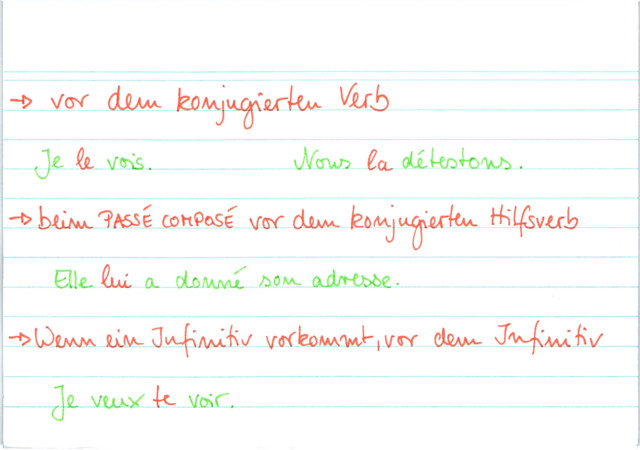 → vor dem konjugierten Verb
Je le vois. Nous la détestons.
→ beim PASSÉ COMPOSÉ vor dem konjugierten Hilfsverb
Elle lui a donné son adresse.
→ Wenn ein Infinitiv vorkommt, vor dem Infinitiv
Je veux te voir.